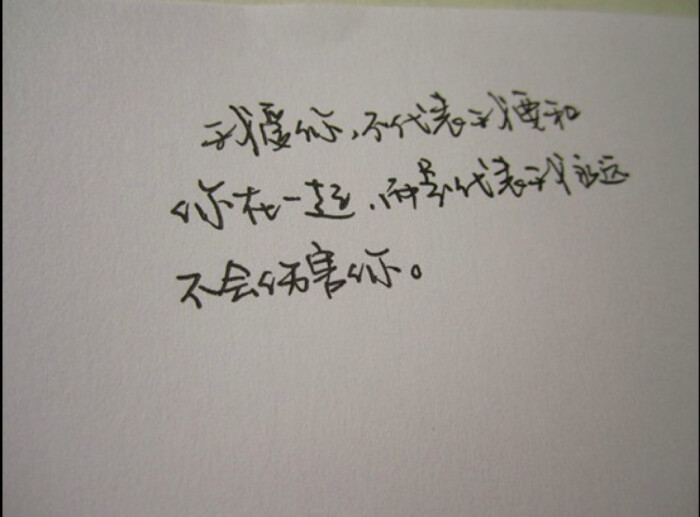 我爱你,不代表我要和
你在一起,而是代表我永远
不会伤害你。